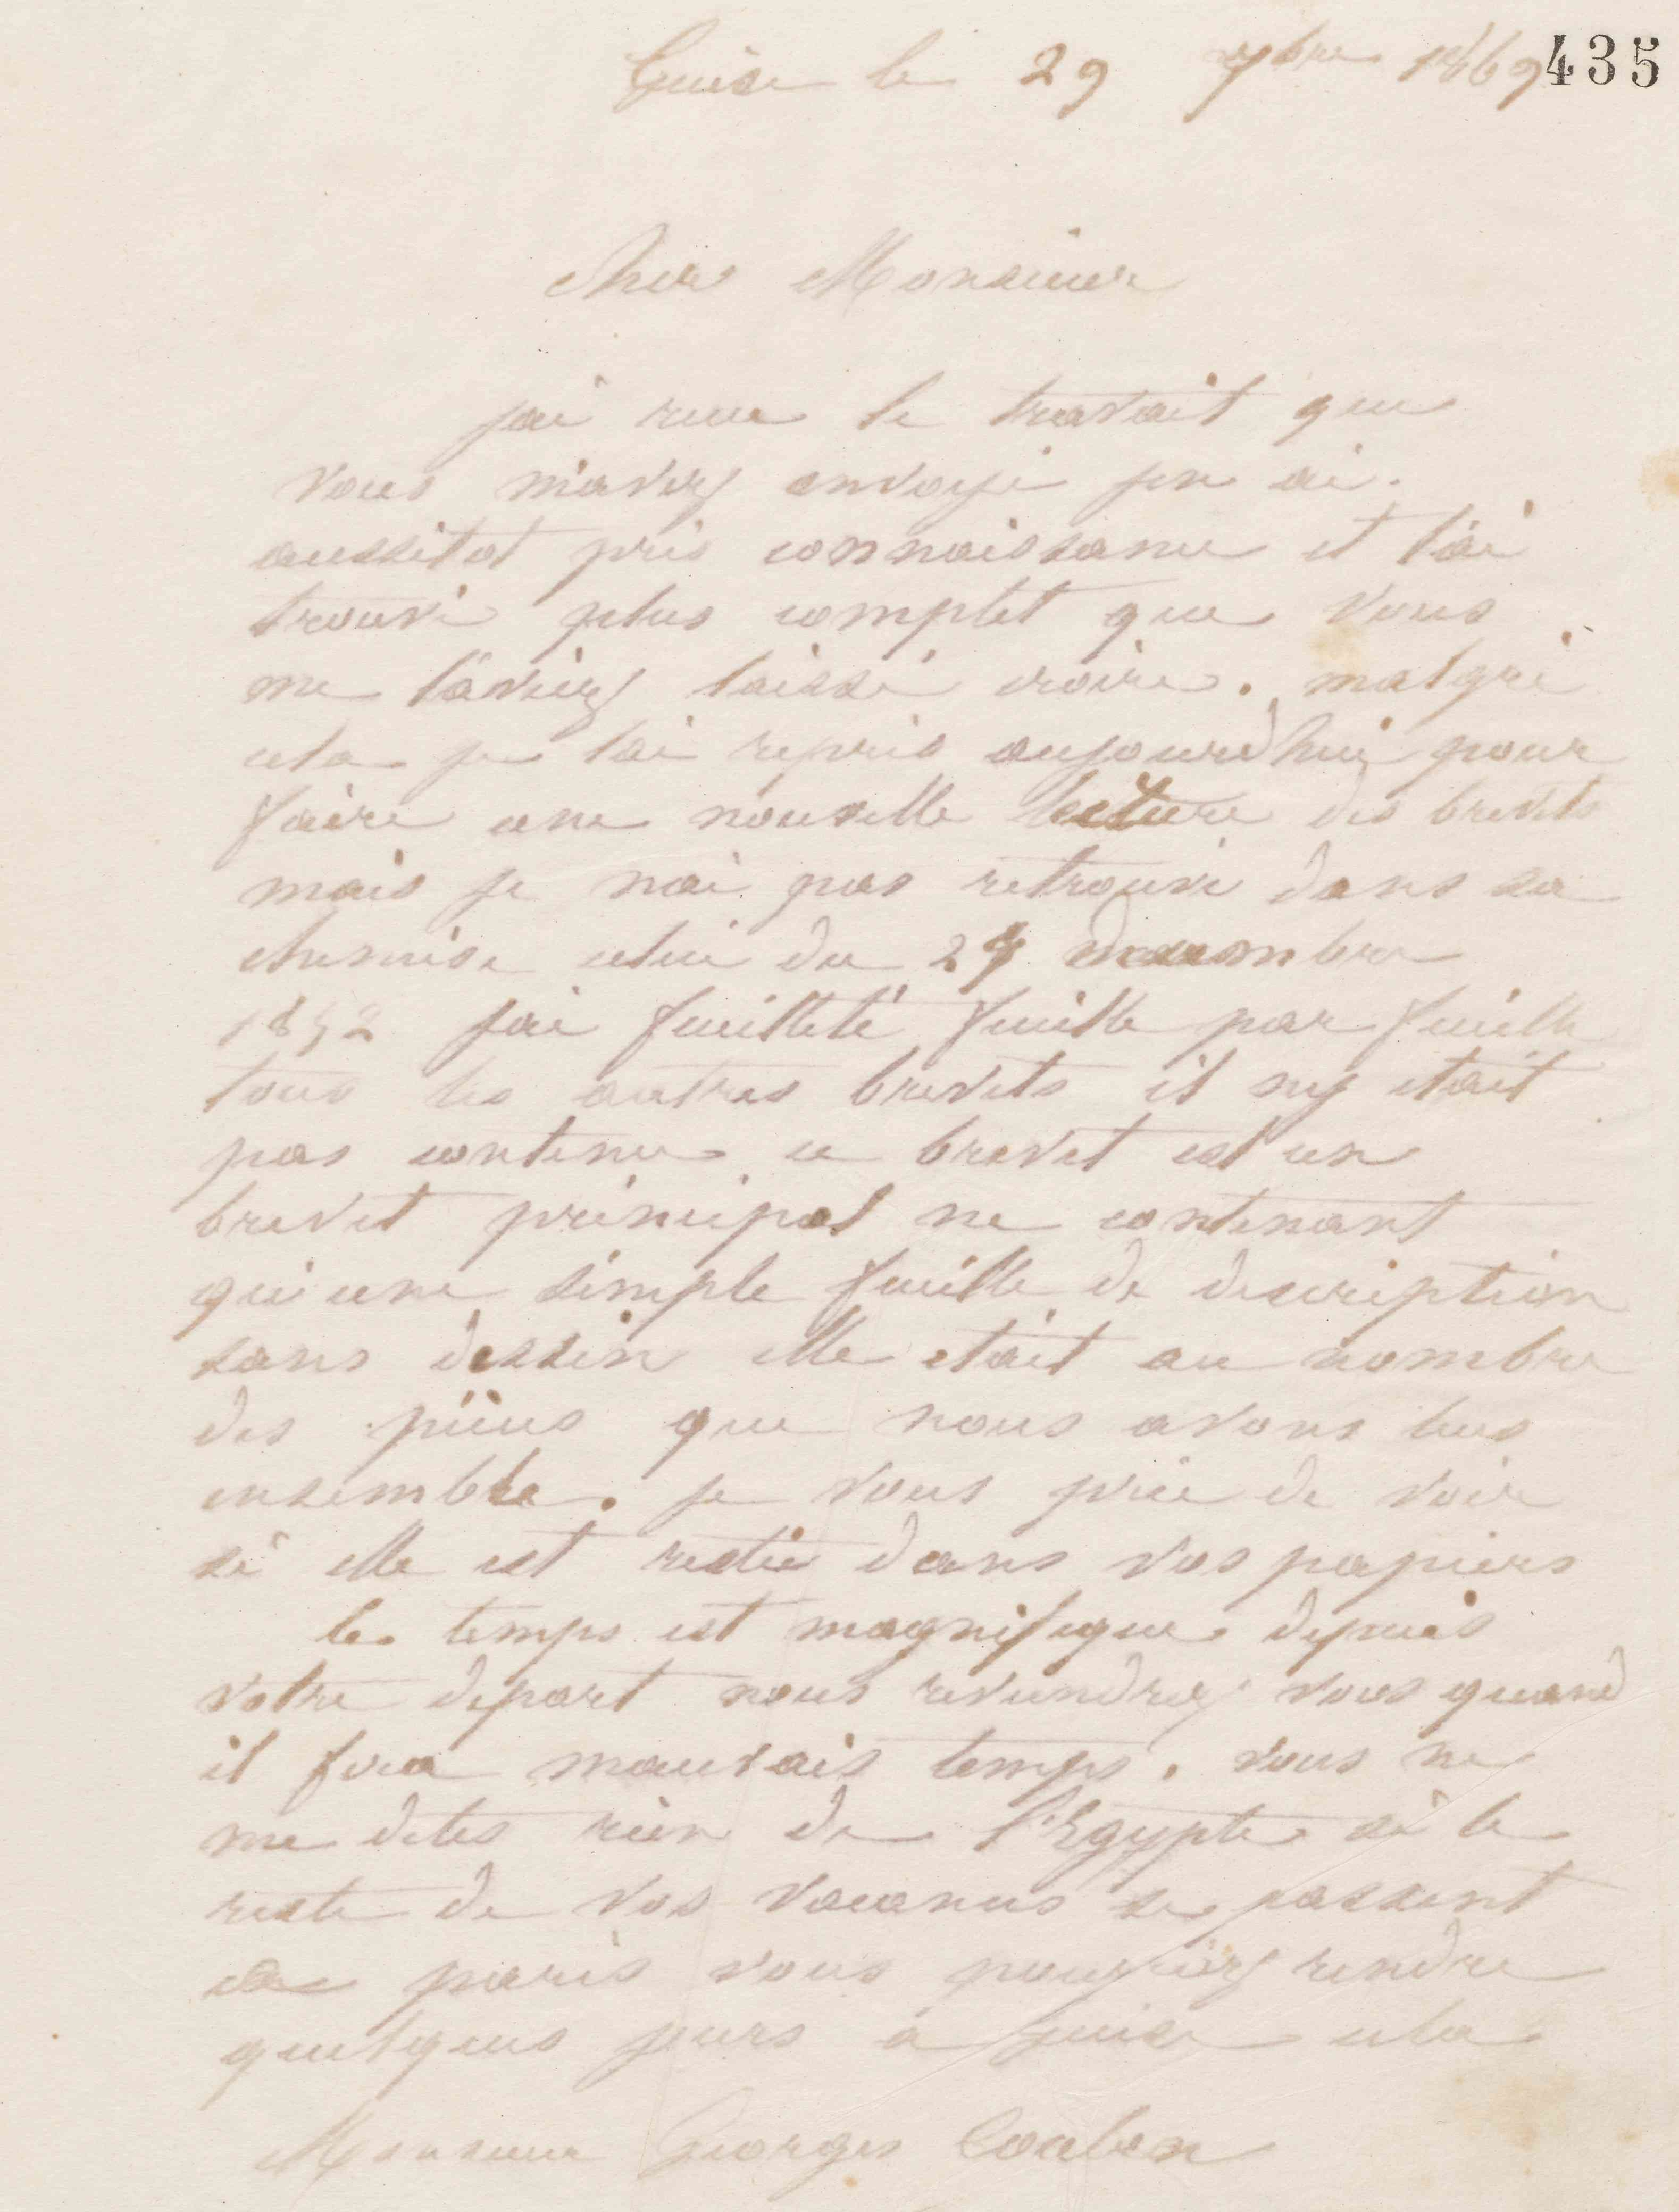 Guise le 29 7bre 1869 435
Cher Monsieur
jai recu le travail que
vous m'avez envoyé jen ai
aussitot pris connaissance et l'ai
trouvé plus complet que vous
me l'aviez laissé croire. malgré
cela je lai repris aujourd'hui pour
faire une nouvelle lecture des brevets
mais je nai pas retrouvé dans sa
chemise celui du 24 decembre
1852 jai feuilleté feuille par feuille
tous les autres brevets il ny etait
pas contenu ce brevet est un
brevet principal ne contenant
qu'une simple feuille de description
sans dessin elle etait au nombre
des pièces que nous avons lues
ensemble. je vous prie de voir
si elle est restée dans vos papiers
le temps est magnifique depuis
votre depart nous reviendrez vous quand
il fera mauvais temps. vous ne
me dites rien de l'Egypte si le
reste de vos vacances se passent
a paris vous pourriez rendre
quelques jours a guise cela
Monsieur Georges Coulon